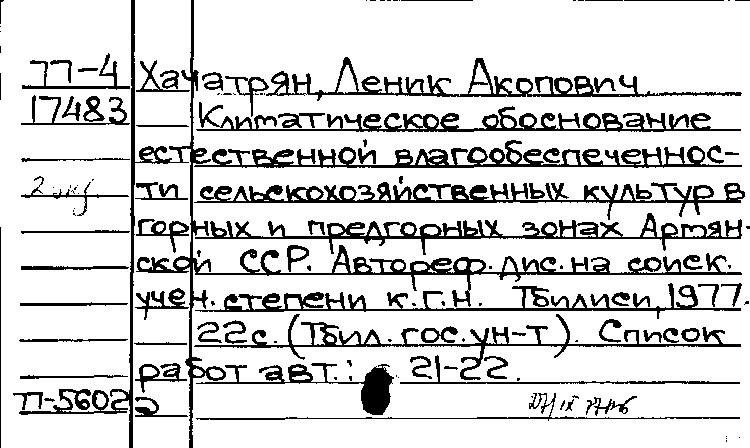 77-4 Хачатрян, Леник Акопович.
17483 Климатическое обоснование
естественной влагообеспеченнос-
2 экз ти сельскохозяйственных культур в
горных и предгорных зонах Армян-
ской ССР. Автореф. дис. на соиск.
учен. степени к.г.н. Тбилиси, 1977.
22с. (Тбил. гос. ун-т). Список
работ авт.: с 21-22.